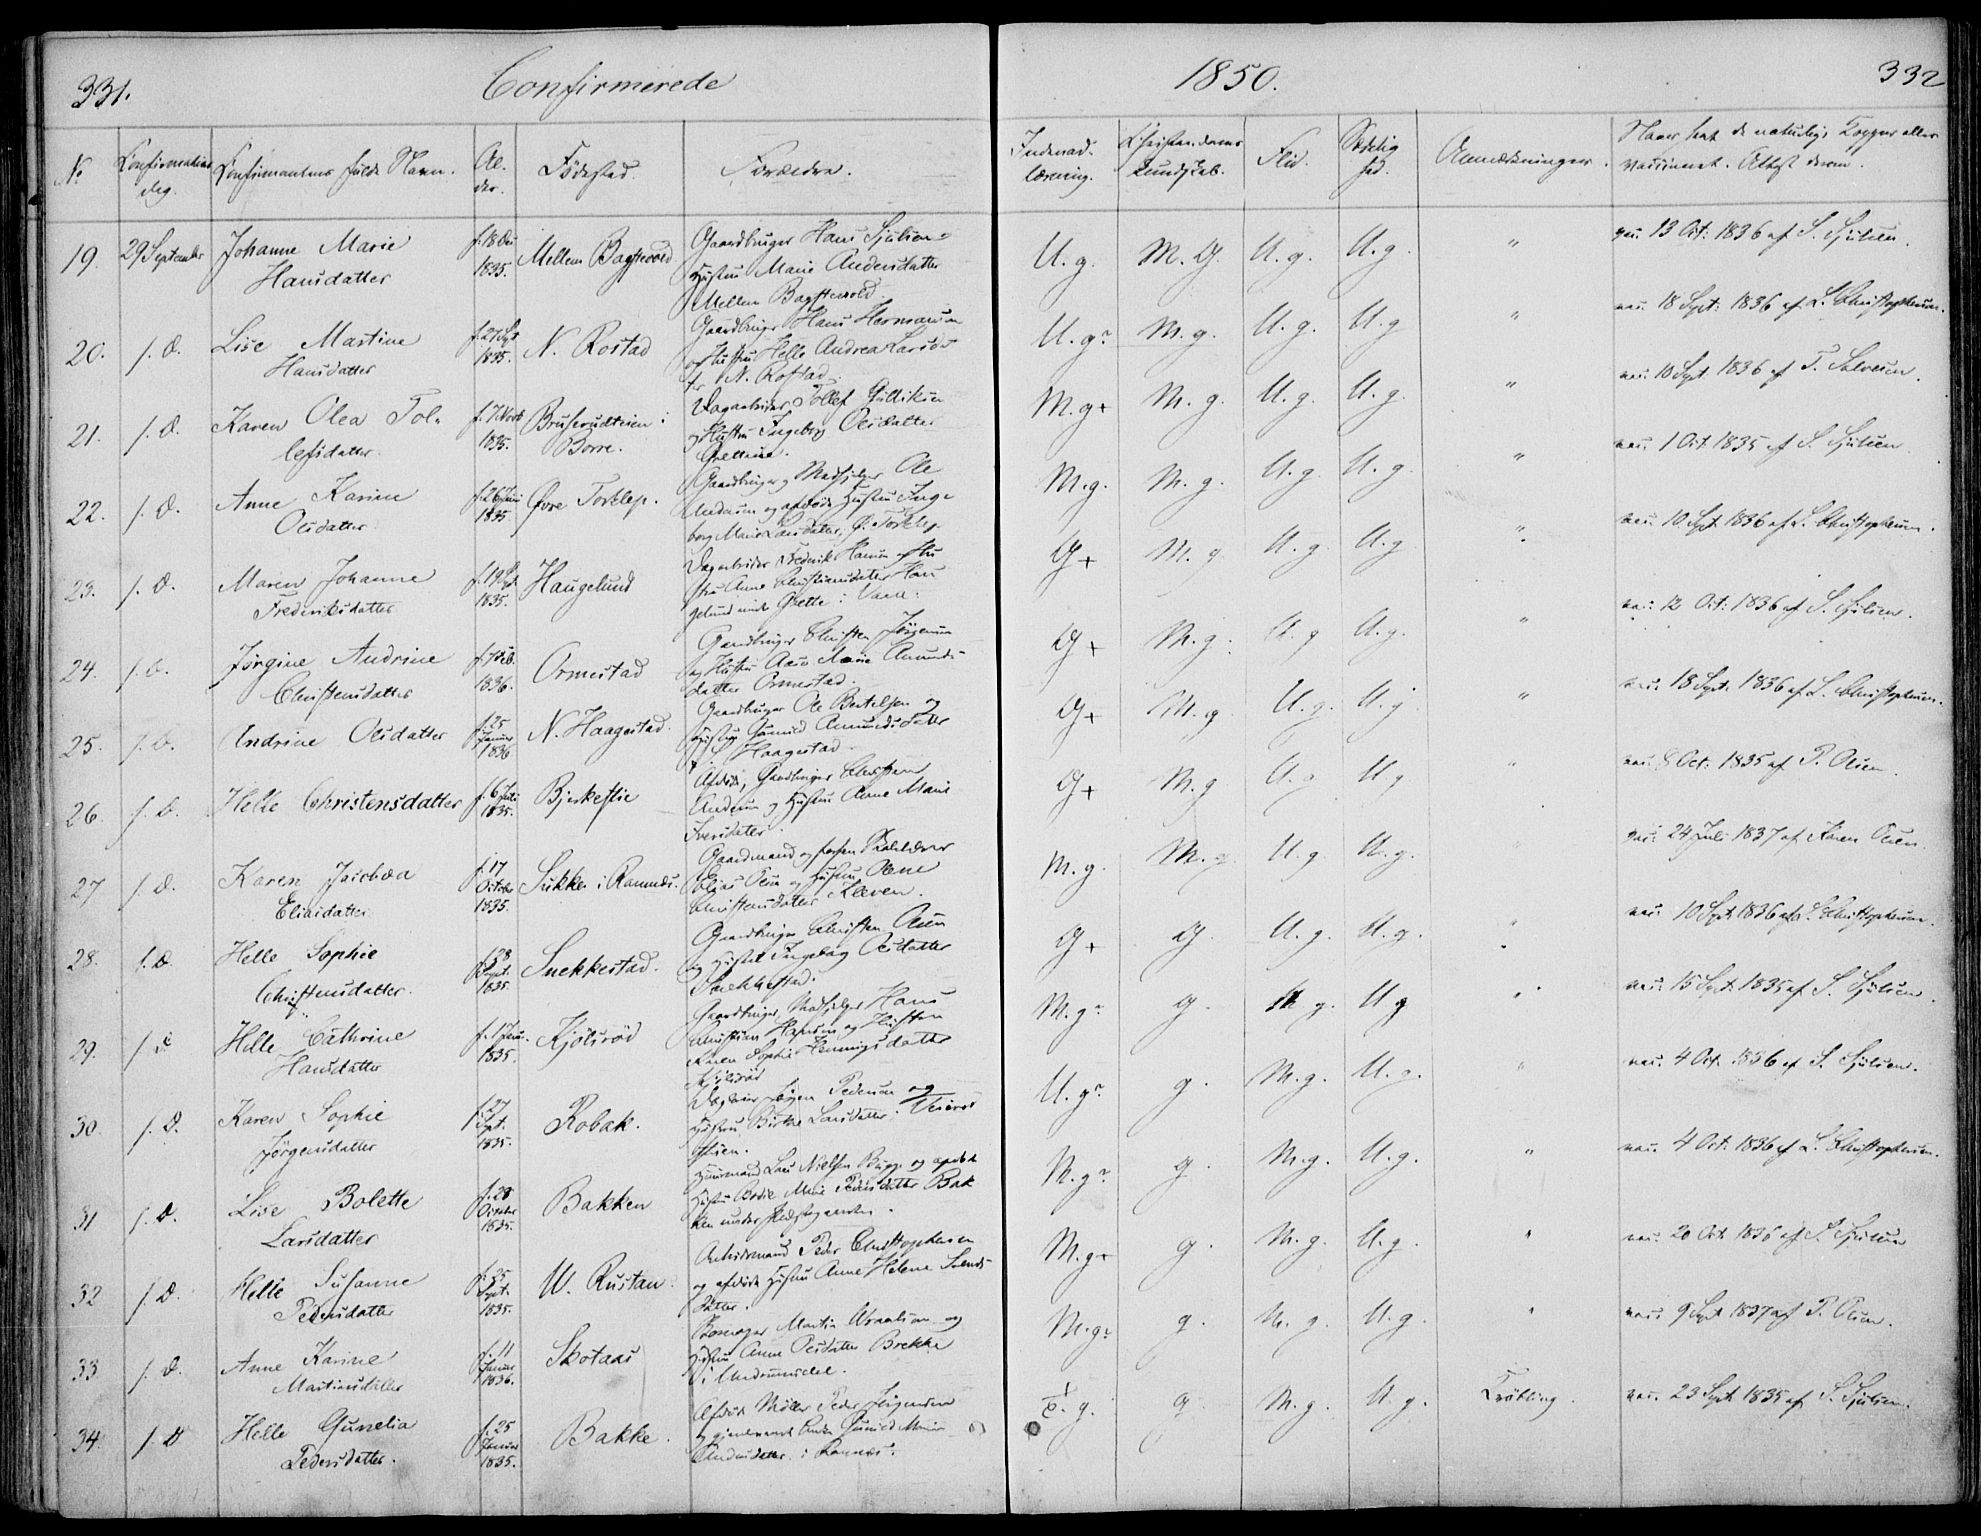 331.
Confirmerede
1850.
332
No
Confirmations dag.
Confirmantens fulde Navn.
Al-
der.
Fødested.
Forældre.
Indenad-
læsning.
Christendoms
Kundskab.
Flid.
Sædelig
hed.
Anmærkninger.
Have havt de naturlige Kopper eller
vaccineret. Attest derom.
19. 29 September Johanne Marie
Hansdatter
f. 18 Dec
1835.
Mellem
Gaardbruger Hans Sjulsen
Hustru Marie Andersdatter
Mellem
U. g. M. G. U. g. U. g. " vac. 13 Oct: 1836 af S. Sjulsen.
20. s. D. Lise Martine
Hansdatter
f. 27 Sept
1835.
N. Rostad
Gaardbruger Hans Hermansen
og Hustru Helle Andrea Larsdat
ter N. Rostad.
U. g? M. g. U. g. U. g " vac. 18 Sept: 1836 af L. Christophersen.
21. s. D. Karen Olea Tol-
lefsdatter.
f. 7 Novb
1835.
i
Borre.
Tollef
og Hustru Ingeborg Olsdatter
M. g+ M. g. U. g. U. g. " vac. 10 Sept. 1836 af T. Salvesen.
22. s. D. Anne Karine
Olsdatter.
f. 26 Juni
1835.
Øvre Torklep.
Gaardbruger og Medhjelper Ole
Andersen og afdøde Hustru Inge-
borg Marie Larsdatter, Ø. Torklep
M. g. M. g. U. g. U. g. " vac. 1 Oct 1835 af S. Sjulsen
23. s. D. Maren Johanne
Frederiksdatter
1835.
Haugelund
Dagarbeider Frederik Hansen og Hu
stru Anne Christiansdatter Hau
gelund
G+ M. g U. g. U. g " vac. 10 Sept 1836 af L. Christophersen.
24. s. D. Jørgine Andrine
Christensdatter
f. 7 Feb.
1836.
Ormestad
Gaardbruger Christen Jørgensen
og Hustru Marie Amunds-
datter Ormestad.
G+ M. g. U. g U. g. " vac: 12 Oct: 1836 af S. Sjulsen.
25. s. D. Andrine Olsdatter
f. 25
Januar
1836
N. Haagestad.
Gaardbruger Ole Bertelsen og
Hustru Gunild Amundsdatter
Haagestad.
G+ M. g U. g. U. g. " vac. 18 Sept. 1836 af L. Christophersen.
26. s. D. Helle Christensdatter
f. 6 Juli
1835.
Afdøde, Gaardbruger Christen
Andersen og Hustru Anne Marie
Iversdatter.
G+ M. g U. g U. g " vac. 8 Oct: 1835 af P. Olsen.
27 s. D. Karen Jacobea
Eliasdatter
f. 17
October
1835.
i Ramnes.
Gaardmand og forhen
Elias Olsen og Hustru
Christensdatter Kleven.
M. g. M. g. U. g U. g. vac: 24 Juli 1837 af Olsen
28. s. D. Helle Sophie
Christensdatter.
f. 28
Sept.
1835.
Snekkestad.
Gaardbruger Christen Olsen
og Hustru Ingeborg Olsdatter
Snekkestad.
G+ G. U. g. U. g. vac. 10 Sept 1836 af L. Christophersen.
29. s. D Helle Cathrine
Hansdatter
f. 1 Janu.
1835.
Kjølsrød
Gaardbruger, Medhjelper Hans
Christian Hansen og Hustru
Karen Sophie Henningsdatter
Kjølsrød
M. g? g. M. g. U. g " vac: 15 Sept: 1835 af S. Sjulsen.
30. s. D. Karen Sophie
Jørgensdatter
f. 27
Sept.
1835.
Robak.
Jørgen Pedersen og
Hustru Birthe Larsdatter
U. g? g. M. g. U. g. " vac. 4 Oct. 1836 af S. Sjulsen.
31 s. D. Lise Bolette
Larsdatter
f. 28
October
1835.
Bakken
Huusmand Lars Nielsen og afdøde
Hustru Marie Pedersdatter Bak
ken under
M. g? g. M. g. U. g. " vac. 4 Oct: 1836 af L. Christophersen.
32 s. D. Helle Susanne
Pedersdatter
f. 25
Sept.
1835.
W. Rustan
Arbeidsmand Peder Christophersen
og afdøde Hustru Anne Helene Svends-
datter.
M. g+ g. M. g. U. g. " vac. 20 Oct 1836 af S. Sjulsen
33 s. D. Anne Karine
Martinsdatter
f. 11
Januar
1836.
Skotaas
Martin og
Hustru Anne Olsdatter Brekke
i Undrumsdal.
M. g? g. M. g. U. g. " vac: 9 Sept 1837 af P. Olsen.
34. s. D Helle Gunelia
Pedersdatter.
f. 25
Januar
1835.
Bakke.
Afdøde Møller Peder Jørgensen
og gjenlevende Enke Gunild Marie
Andersdatter i Ramnes.
T. g. g M. g. U. g. Tvilling. vac. 23 Sept 1835 af S. Sjulsen.